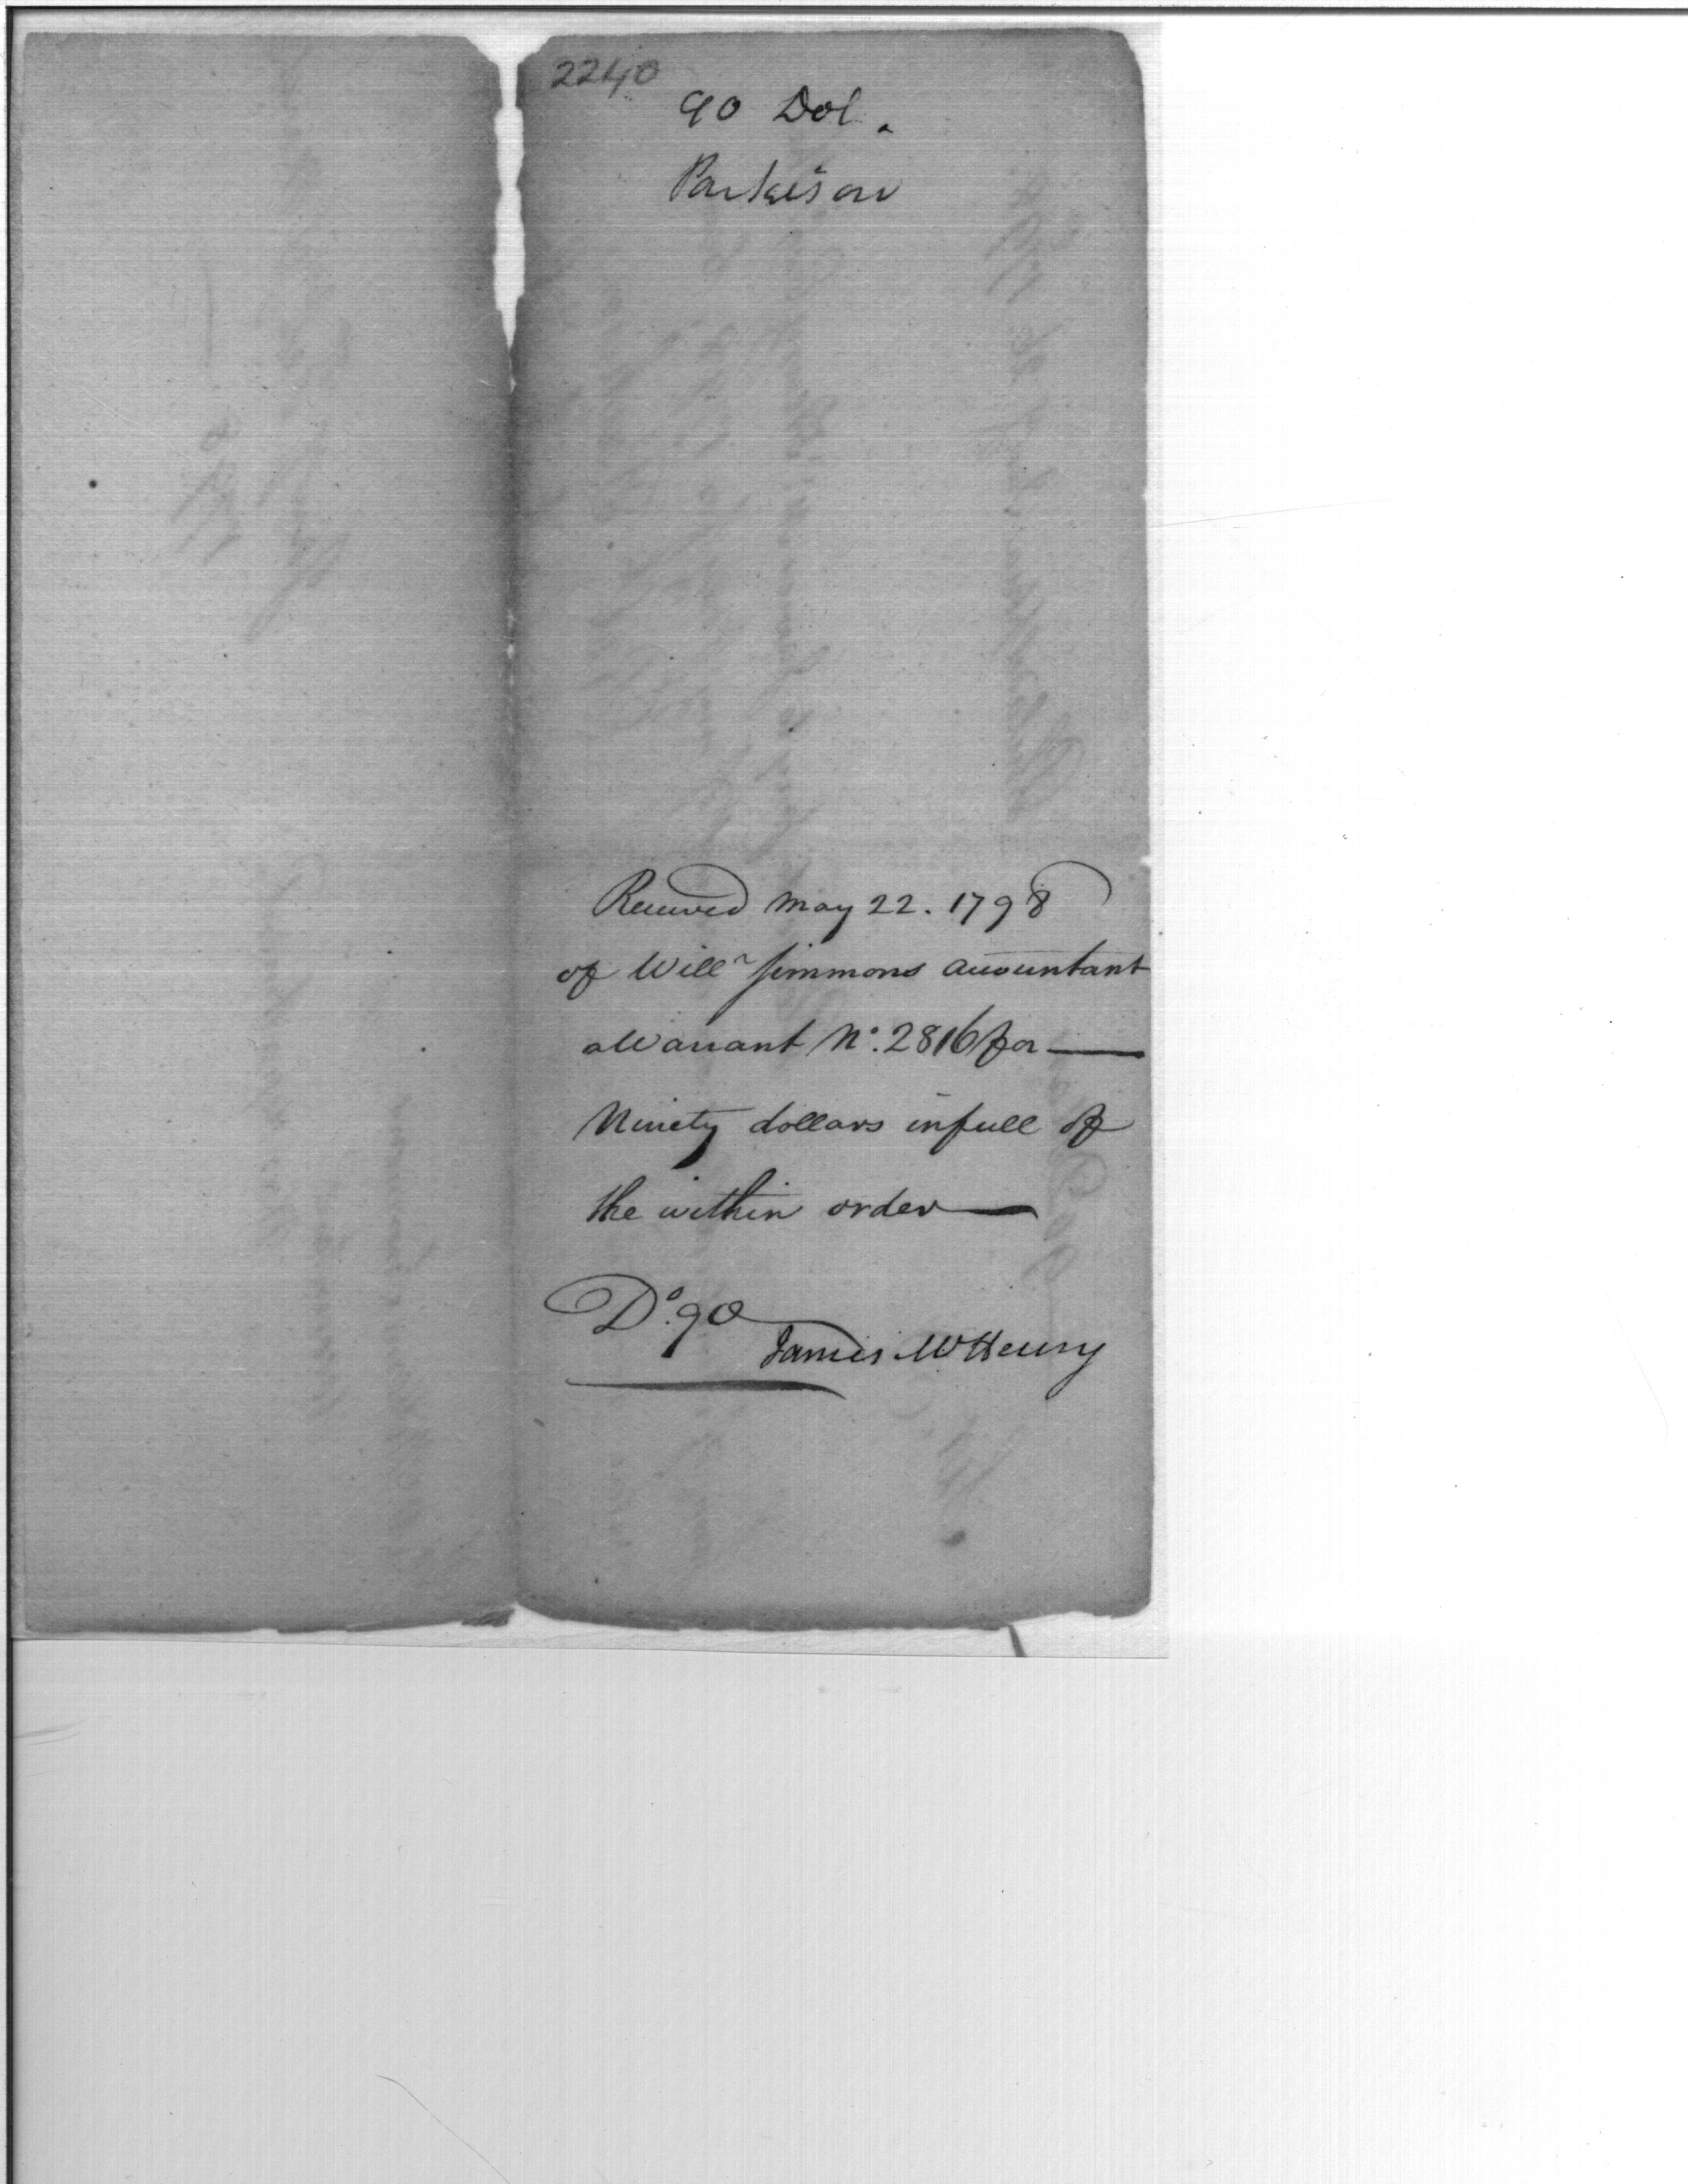 2240
90 Dol.
Parkison
Received May 22. 1798
of Will^m Simmons accountant
a Warrant N^o. 2816 for —
Ninety dollars in full of
the within order —
D^o. 90
James McHenry